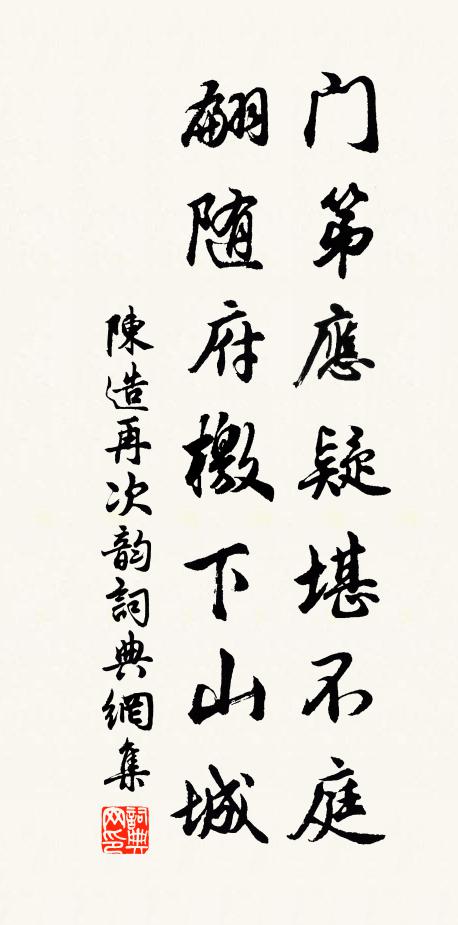 門第應疑堪不庭
翩随府檄下山城
陳造再次韵詞典網集
詞典网印